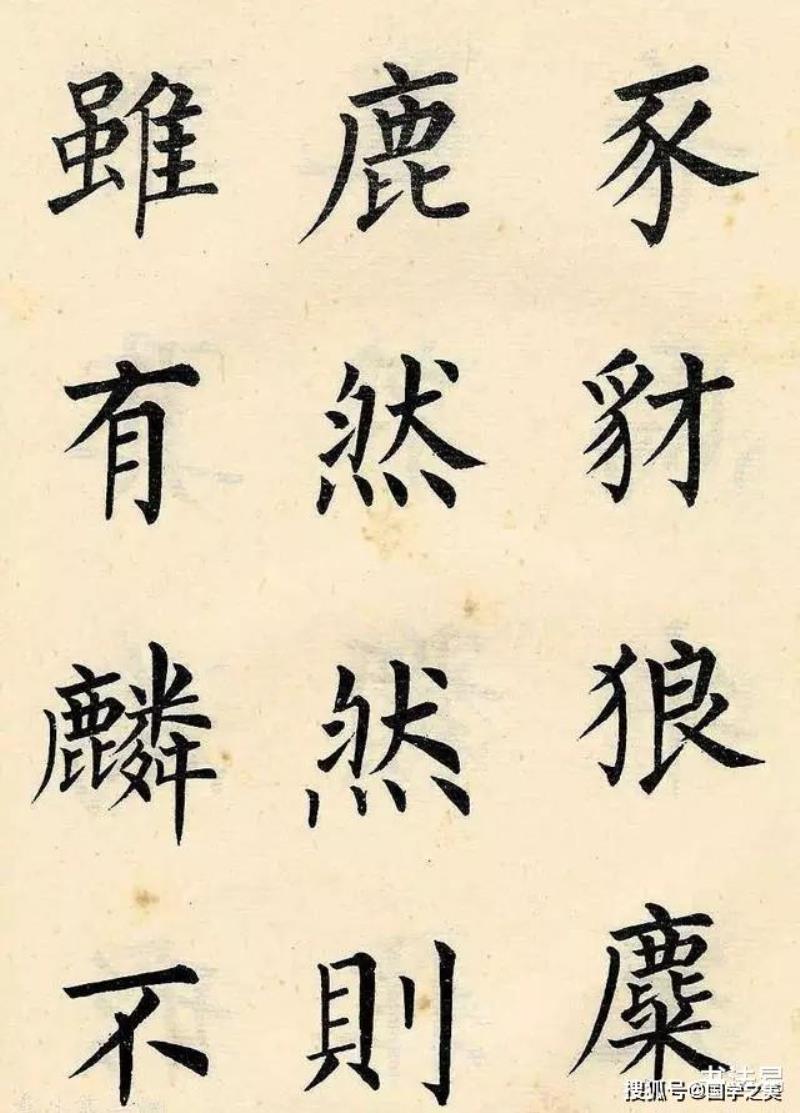 豕豺狼麋
鹿然然則
雖有麟不
搜狐号@国学之美